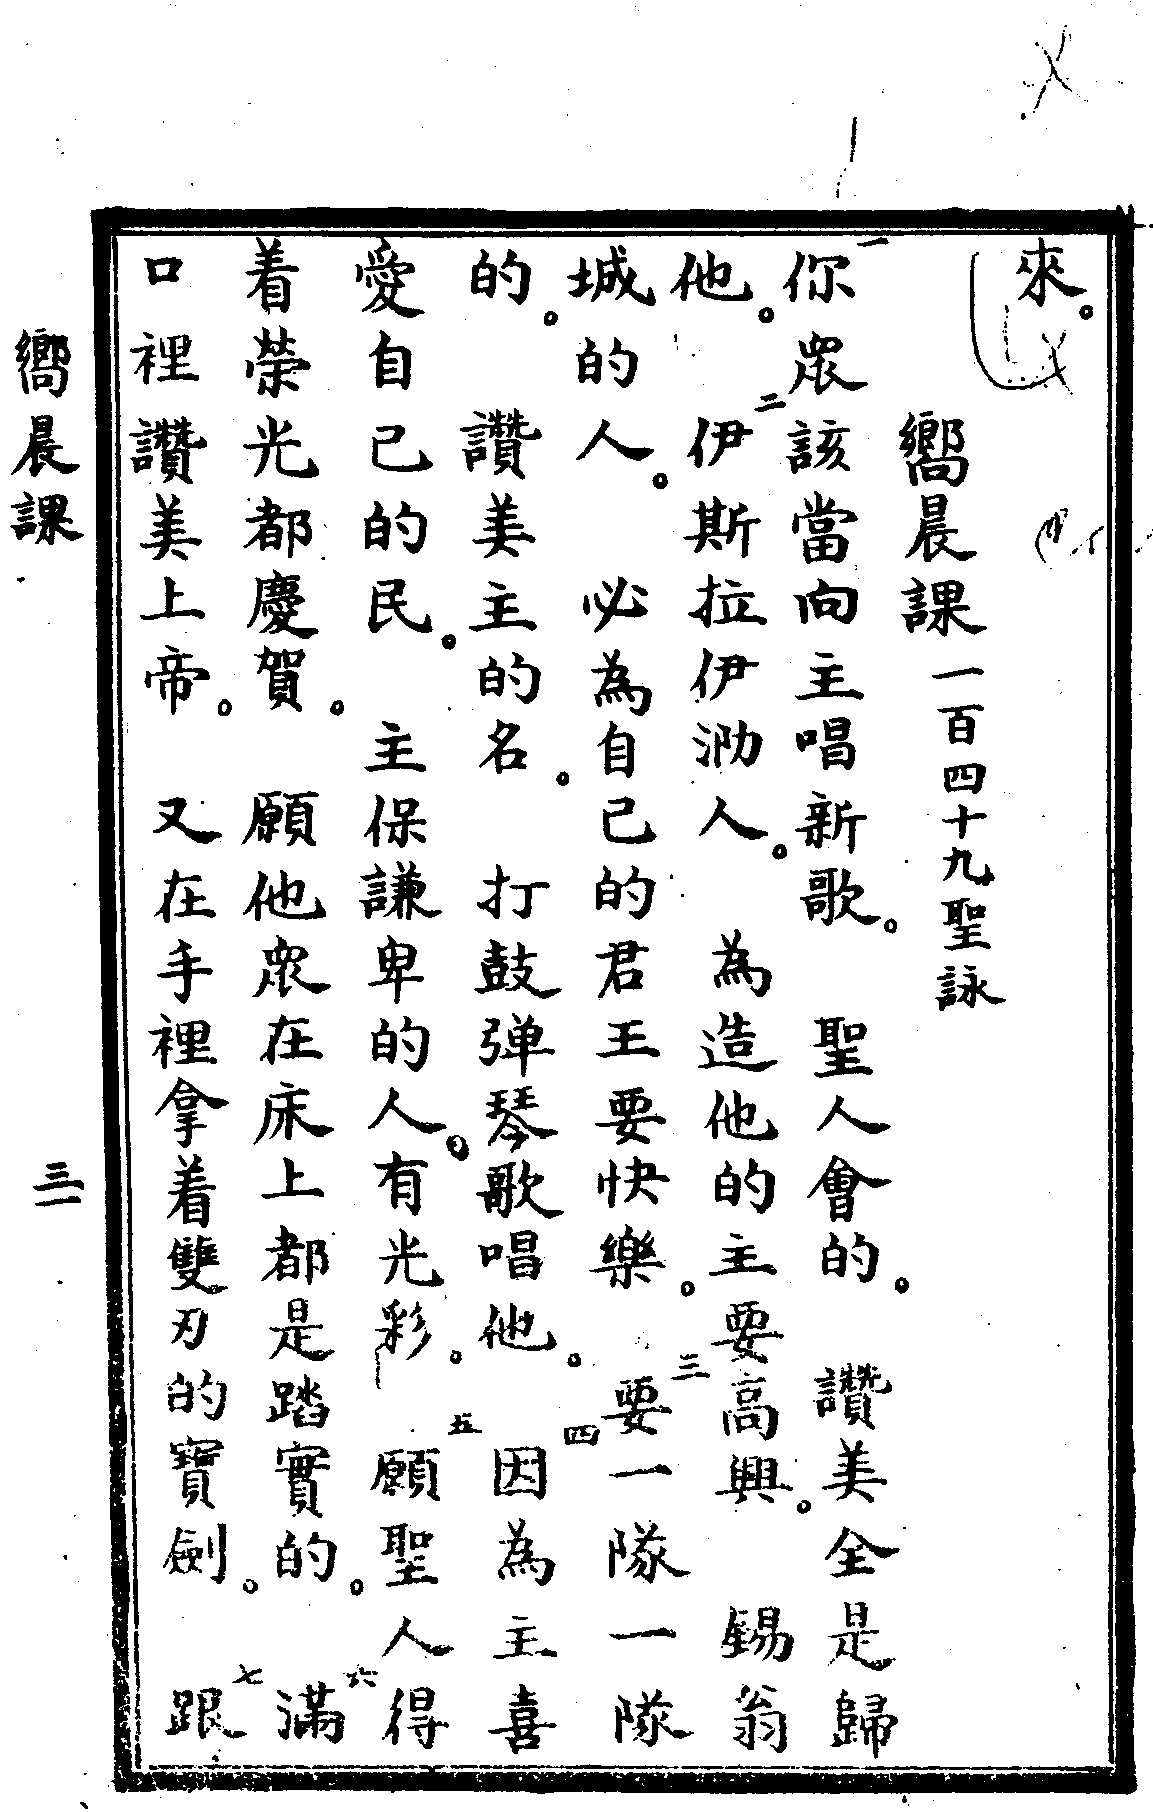 來。
嚮晨課 一百四十九聖詠
一你眾該當向主唱新歌。聖人會的。讚美全是歸
他。二伊斯拉伊泐人。為造他的主要高興。錫翁
城的人。必為自己的君王要快樂。三要一隊一隊
的。讚美主的名。打鼓弹琴歌唱他。四因為主喜
愛自己的民。主保謙卑的人。有光彩。五願聖人得
着榮光都慶賀。願他眾在床上都是踏實的。六滿
口裡讚美上帝。又在手裡拿着雙刃的寶劍。七跟
嚮晨課
三一